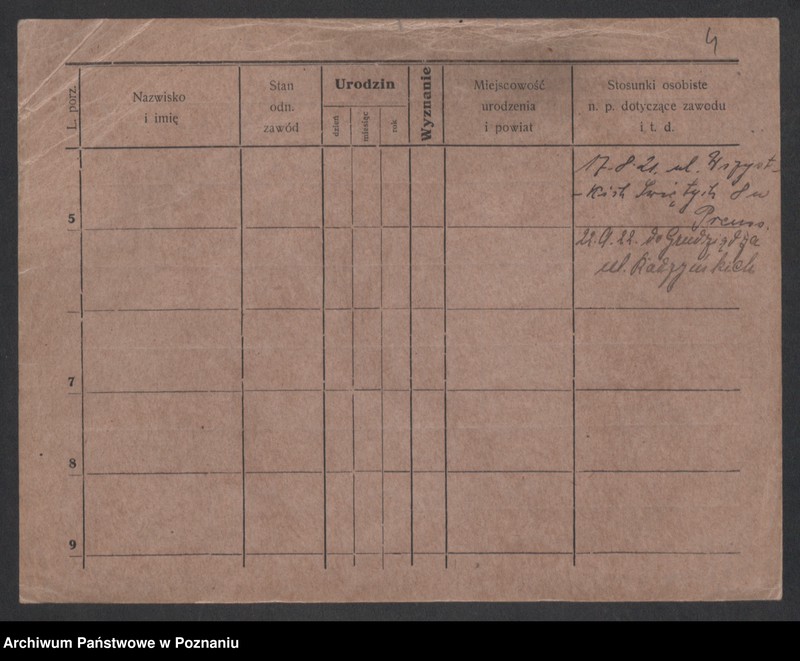 4
L. porz.
Nazwisko
i imię
Stan
odn.
zawód
Urodzin
dzień
miesiąc
rok
Wyznanie
Miejscowość
urodzenia
i powiat
Stosunki osobiste
n. p. dotyczące zawodu
i. t. d.
17.8.21. ul. Wszyst-
-kich Świętych 8 u
5
22.9.22. do Grudziądza
ul. Radzyńskich
7
8
9
Archiwum Państwowe w Poznaniu